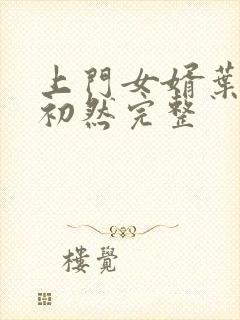 上門女婿葉
初然完整
樓覺